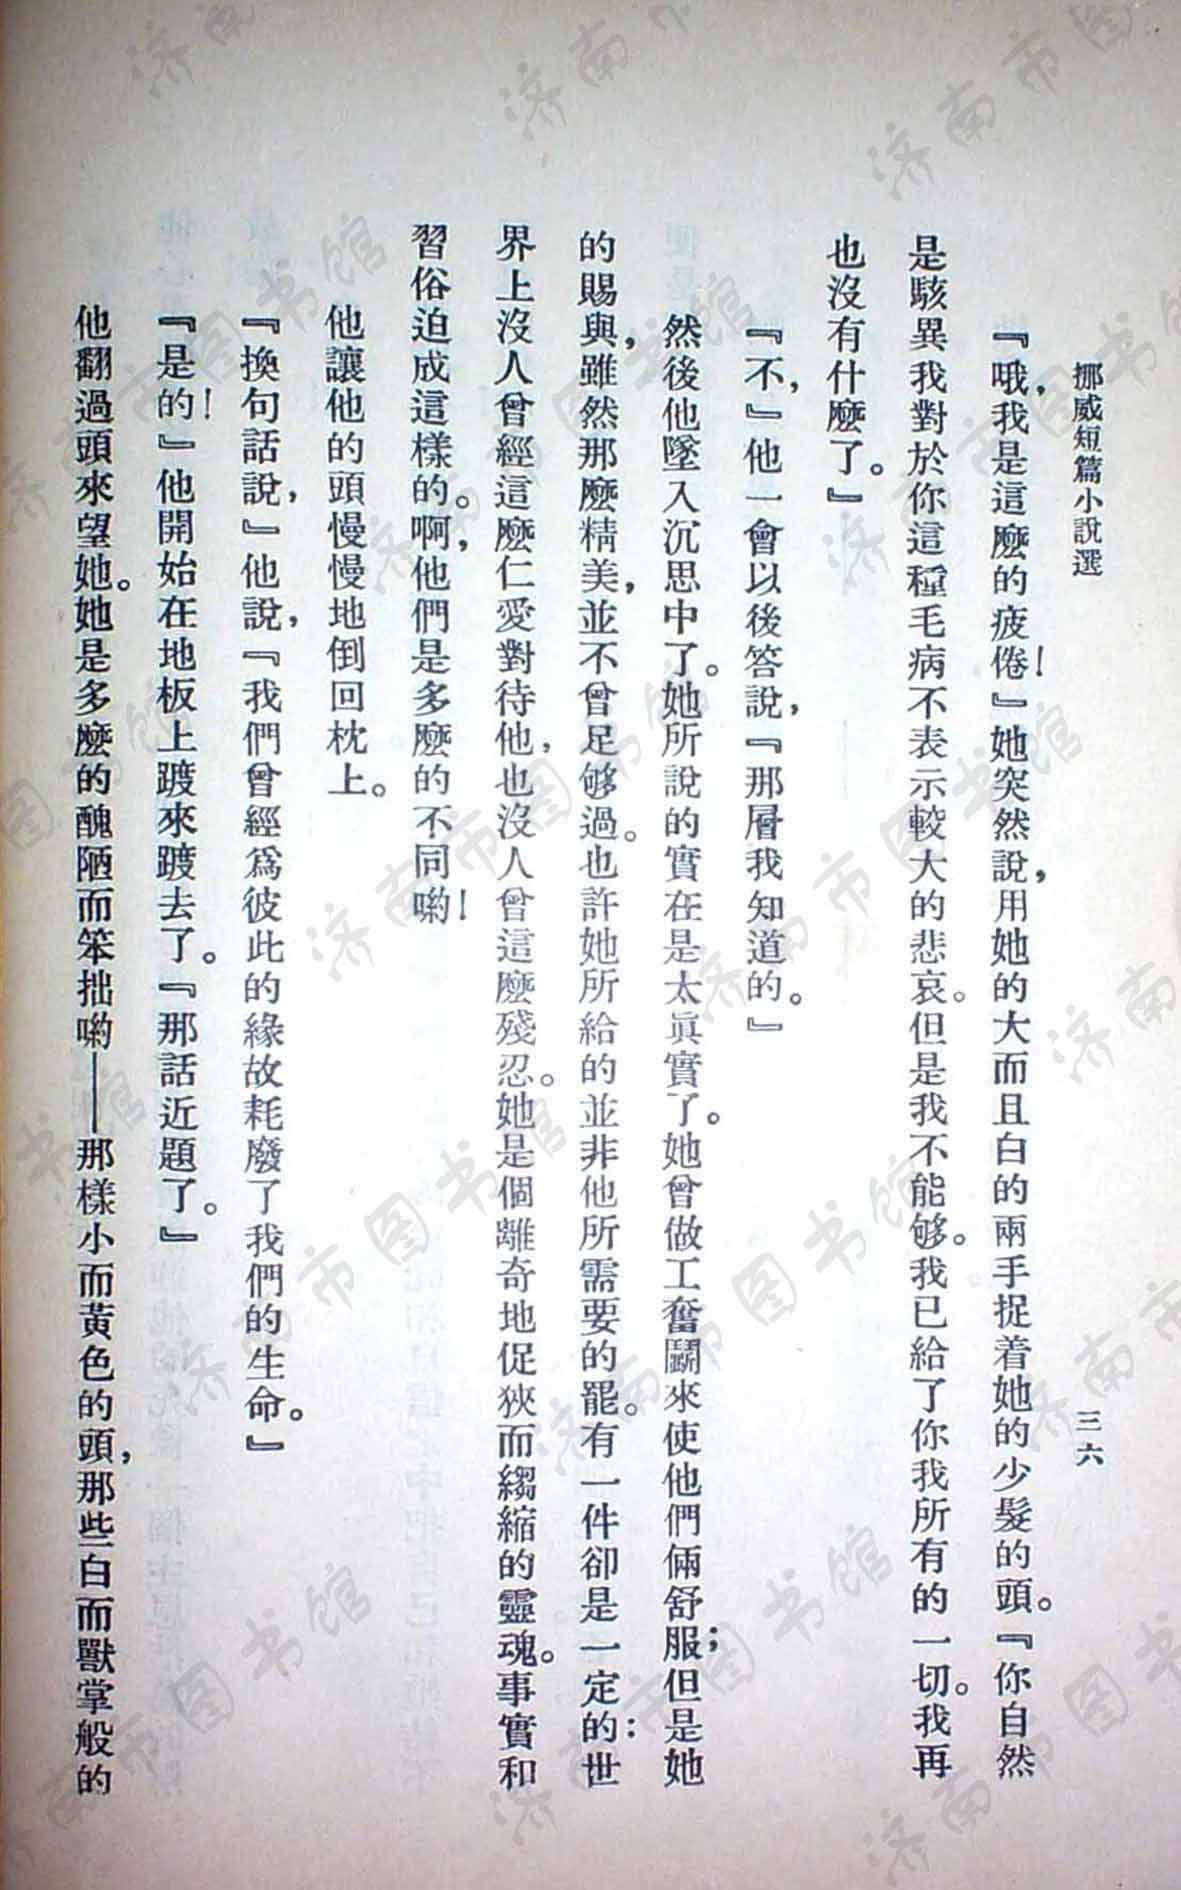 挪威短篇小說選
三六
『哦，我是這麼的疲倦！』她突然說，用她的大而且白的兩手捉着她的少髮的頭。『你自然
是駭異我對於你這種毛病不表示較大的悲哀。但是我不能够。我已給了你我所有的一切。我再
也沒有什麼了。』
『不，』他一會以後答說，『那層我知道的。』
然後他墜入沉思中了。她所說的實在是太眞實了。她曾做工奮鬭來使他們倆舒服；但是她
的賜與，雖然那麼精美，並不曾足够過。也許她所給的並非他所需要的罷。有一件卻是一定的：世
界上沒人曾經這麼仁愛對待他，也沒人曾這麼殘忍。她是個離奇地促狹而縐縮的靈魂。事實和
習俗迫成這樣的。啊，他們是多麼的不同喲！
他讓他的頭慢慢地倒回枕上。
『換句話說，』他說，『我們曾經爲彼此的緣故耗廢了我們的生命。』
『是的！』他開始在地板上踱來踱去了。『那話近題了。』
他翻過頭來望她。她是多麼的醜陋而笨拙喲——那樣小而黃色的頭，那些白而獸掌般的
濟南市图书馆